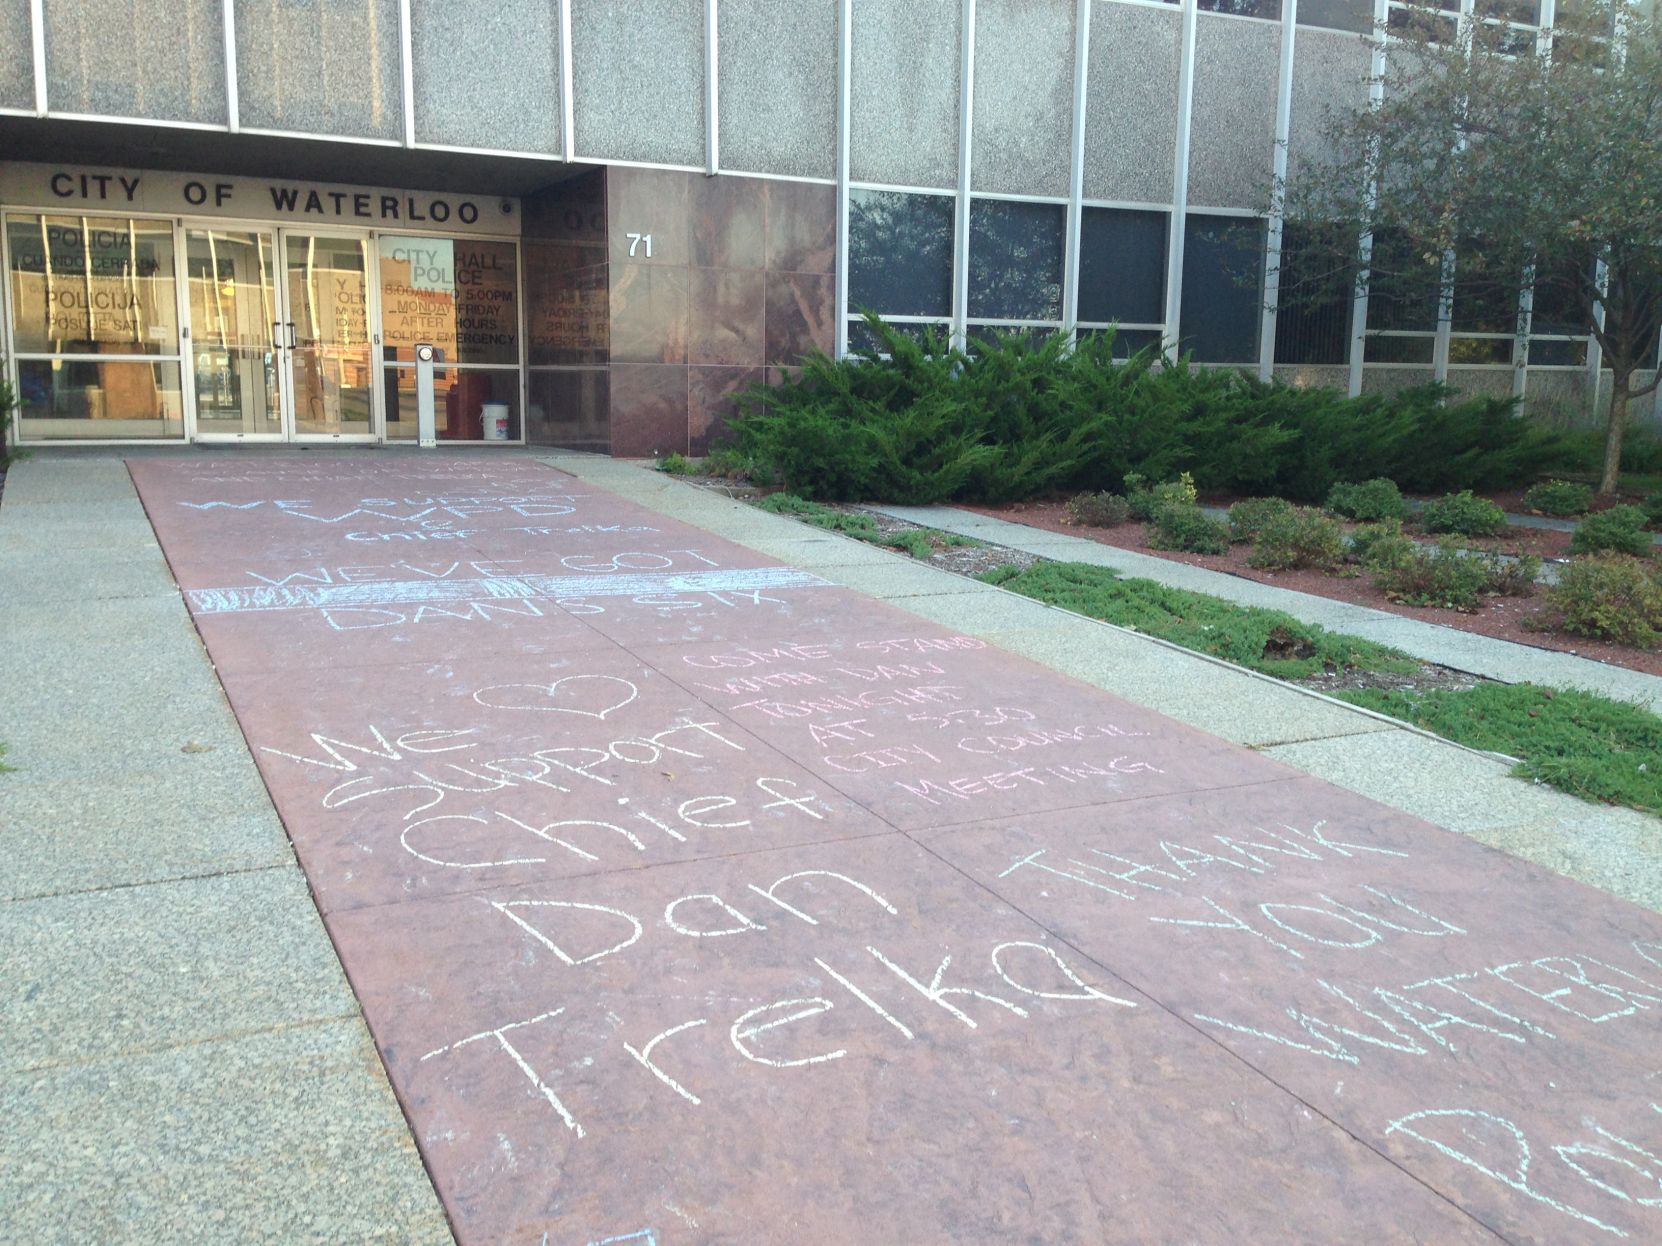 CITY OF WATERLOO
71
POLICIA
CUANDO CERRADA
POLICIJA
POSLIJE SATI
CITY HALL
POLICE
8:00AM TO 5:00PM
MONDAY-FRIDAY
AFTER HOURS
POLICE EMERGENCY
WE SUPPORT
WPD
&
Chief Trelka
WE'VE GOT
DAN'S SIX
COME STAND
WITH DAN
TONIGHT
AT 5:30
CITY COUNCIL
MEETING
We
Support
Chief
Dan
Trelka
THANK
YOU